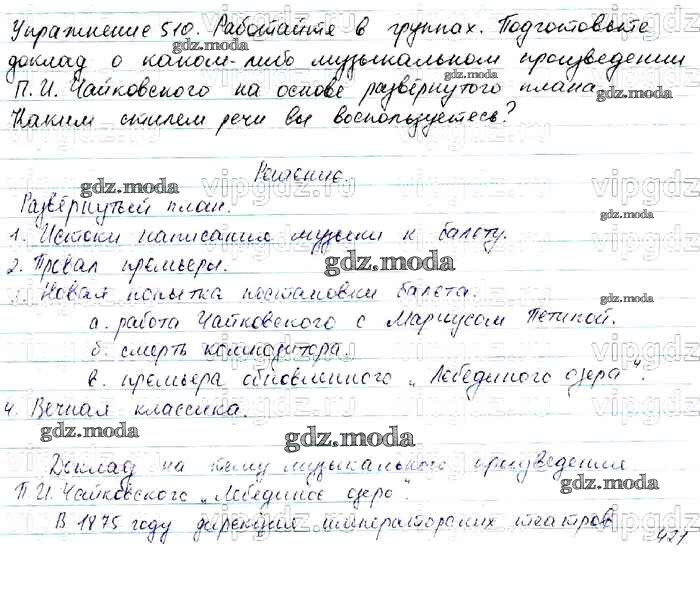 Упражнение 510. Работайте в группах. Подготовьте
доклад о каком-либо музыкальном произведении
П.И. Чайковского на основе развёрнутого плана.
Каким стилем речи вы воспользуетесь?
Решение.
Развёрнутый план.
1. Истоки написания музыки к балету.
2. Провал премьеры.
3. Новая попытка постановки балета.
а. работа Чайковского с Мариусом Петипой.
б. смерть композитора.
в. премьера обновленного „Лебединого озера“.
4. Вечная классика.
Доклад на тему музыкального произведения
П.И. Чайковского „Лебединое озеро“.
В 1875 году дирекция императорских театров
421
gdz.moda
vipgdz.ru